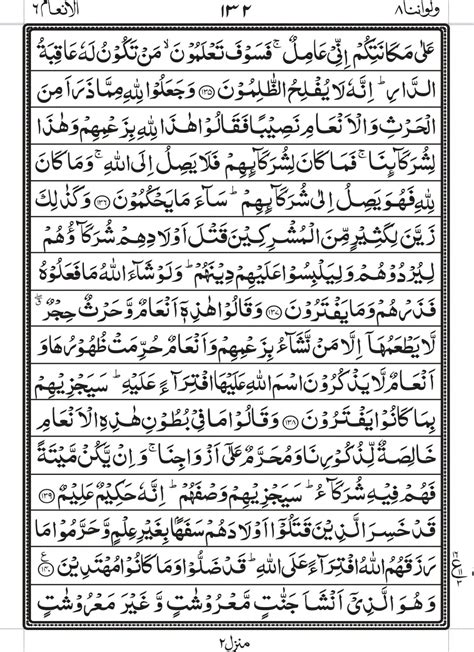 ولواننا ٨ ١٣٢ الانعام ٦
عَلٰى مَكَانَتِكُمْ اِنِّىْ عَامِلٌ ۚ فَسَوْفَ تَعْلَمُوْنَ ۙ مَنْ تَكُوْنُ لَهٗ عَاقِبَةُ
الدَّارِ ؕ اِنَّهٗ لَا يُفْلِحُ الظّٰلِمُوْنَ ﴿١٣٥﴾ وَجَعَلُوْا لِلّٰهِ مِمَّا ذَرَاَ مِنَ
الْحَرْثِ وَالْاَنْعَامِ نَصِيْبًا فَقَالُوْا هٰذَا لِلّٰهِ بِزَعْمِهِمْ وَهٰذَا
لِشُرَكَآئِنَا ۚ فَمَا كَانَ لِشُرَكَآئِهِمْ فَلَا يَصِلُ اِلَى اللّٰهِ ۚ وَمَا كَانَ
لِلّٰهِ فَهُوَ يَصِلُ اِلٰى شُرَكَآئِهِمْ ؕ سَآءَ مَا يَحْكُمُوْنَ ﴿١٣٦﴾ وَكَذٰلِكَ
زَيَّنَ لِكَثِيْرٍ مِّنَ الْمُشْرِكِيْنَ قَتْلَ اَوْلَادِهِمْ شُرَكَآؤُهُمْ
لِيُرْدُوْهُمْ وَلِيَلْبِسُوْا عَلَيْهِمْ دِيْنَهُمْ ؕ وَلَوْ شَآءَ اللّٰهُ مَا فَعَلُوْهُ
فَذَرْهُمْ وَمَا يَفْتَرُوْنَ ﴿١٣٧﴾ وَقَالُوْا هٰذِهٖۤ اَنْعَامٌ وَّحَرْثٌ حِجْرٌ
لَّا يَطْعَمُهَاۤ اِلَّا مَنْ نَّشَآءُ بِزَعْمِهِمْ وَاَنْعَامٌ حُرِّمَتْ ظُهُوْرُهَا وَ
اَنْعَامٌ لَّا يَذْكُرُوْنَ اسْمَ اللّٰهِ عَلَيْهَا افْتِرَآءً عَلَيْهِ ؕ سَيَجْزِيْهِمْ
بِمَا كَانُوْا يَفْتَرُوْنَ ﴿١٣٨﴾ وَقَالُوْا مَا فِىْ بُطُوْنِ هٰذِهِ الْاَنْعَامِ
خَالِصَةٌ لِّذُكُوْرِنَا وَمُحَرَّمٌ عَلٰٓى اَزْوَاجِنَا ۚ وَاِنْ يَّكُنْ مَّيْتَةً
فَهُمْ فِيْهِ شُرَكَآءُ ؕ سَيَجْزِيْهِمْ وَصْفَهُمْ ؕ اِنَّهٗ حَكِيْمٌ عَلِيْمٌ ﴿١٣٩﴾
قَدْ خَسِرَ الَّذِيْنَ قَتَلُوْۤا اَوْلَادَهُمْ سَفَهًۢا بِغَيْرِ عِلْمٍ وَّحَرَّمُوْا مَا
رَزَقَهُمُ اللّٰهُ افْتِرَآءً عَلَى اللّٰهِ ؕ قَدْ ضَلُّوْا وَمَا كَانُوْا مُهْتَدِيْنَ ﴿١٤٠﴾
وَهُوَ الَّذِىْۤ اَنْشَاَ جَنّٰتٍ مَّعْرُوْشٰتٍ وَّغَيْرَ مَعْرُوْشٰتٍ
منزل ٢